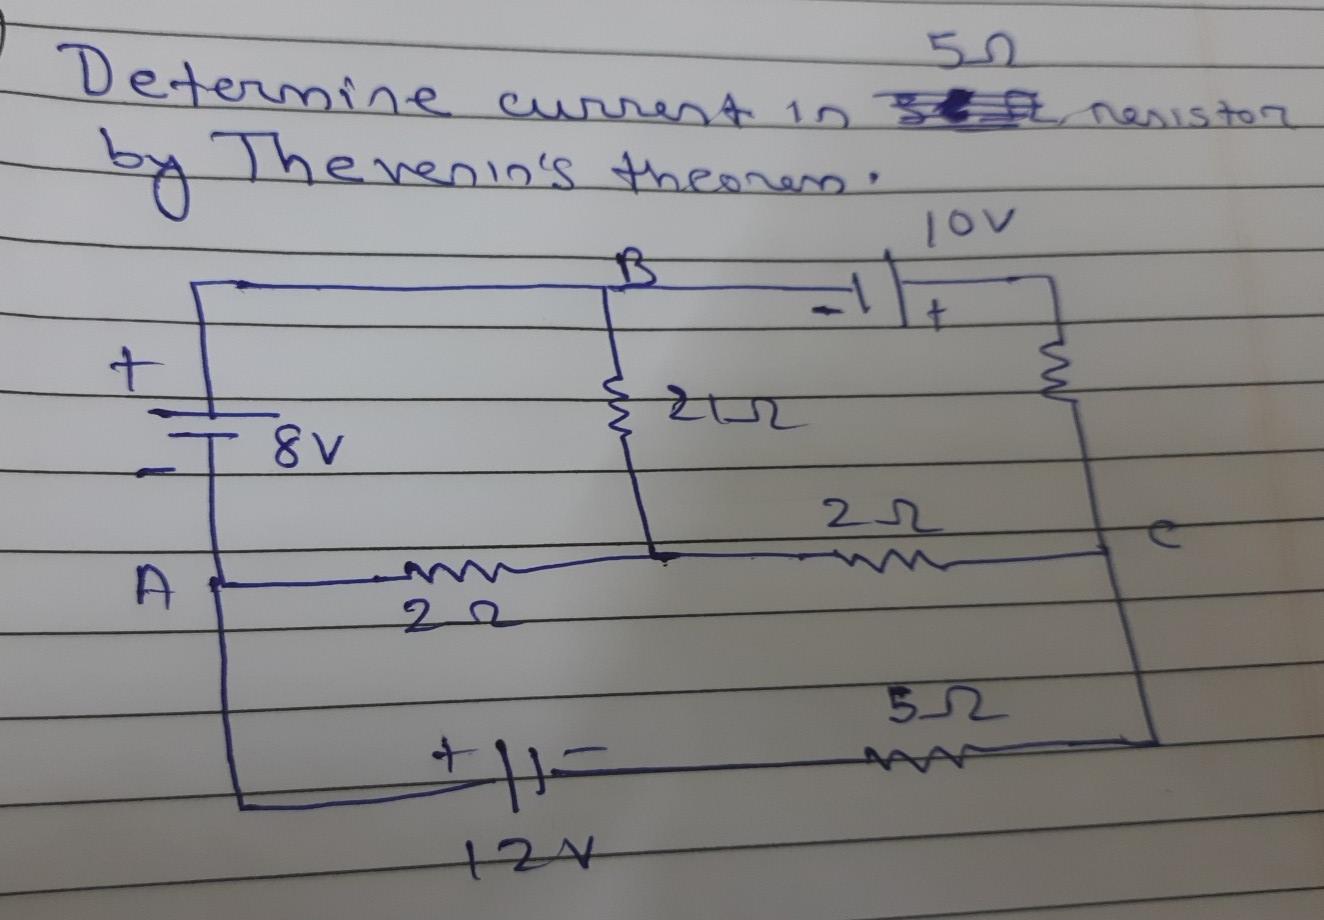 5Ω
Determine current in resistor
by Thevenin's theorem.
10V
B
- +
+
8V
-
2Ω
2Ω
C
A
2Ω
5Ω
+ -
12V